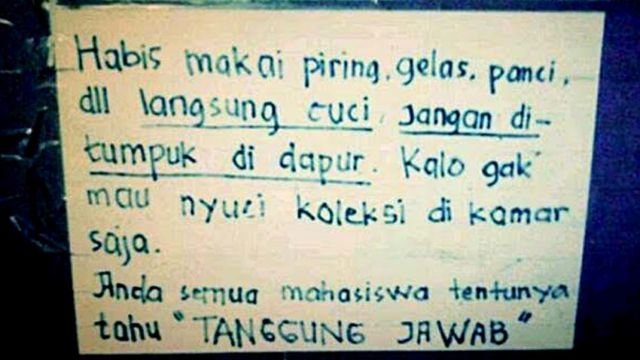 Habis makai piring, gelas, panci,
dll langsung cuci, Jangan di-
tumpuk di dapur. Kalo gak
mau nyuci koleksi di kamar
saja.
Anda semua mahasiswa tentunya
tahu "TANGGUNG JAWAB"